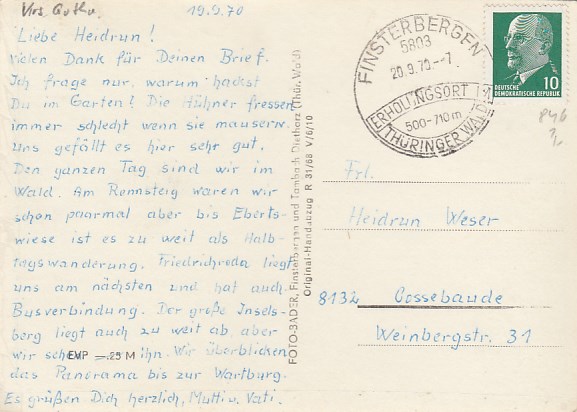 Krs. Gotha.
19.9.70
Liebe Heidrun!
Vielen Dank für Deinen Brief.
Ich frage nur, warum hackst
Du im Garten! Die Hühner fressen
immer schlecht wenn sie mausern.
Uns gefällt es hier sehr gut.
Den ganzen Tag sind wir im
Wald. Am Rennsteig waren wir
schon paarmal aber bis Eberts-
wiese ist es zu weit als Halb-
tagswanderung. Friedrichroda liegt
uns am nächsten und hat auch
Busverbindung. Der große Insels-
berg liegt auch zu weit ab, aber
wir sehen ihn. Wir überblicken
EVP —.25 M
das Panorama bis zur Wartburg.
Es grüßen Dich herzlich, Mutti u. Vati.
FOTO-BADER, Finsterbergen und Tambach Dietharz (Thür. Wald)
Original-Handabzug R 31/68 V/6/10
FINSTERBERGEN
5803
20.9.70--7
ERHOLUNGSORT I.
500-710 m
THÜRINGER WALD
DEUTSCHE
DEMOKRATISCHE REPUBLIK
10
Frl.
Heidrun Weser
8132 Cossebaude
Weinbergstr. 31